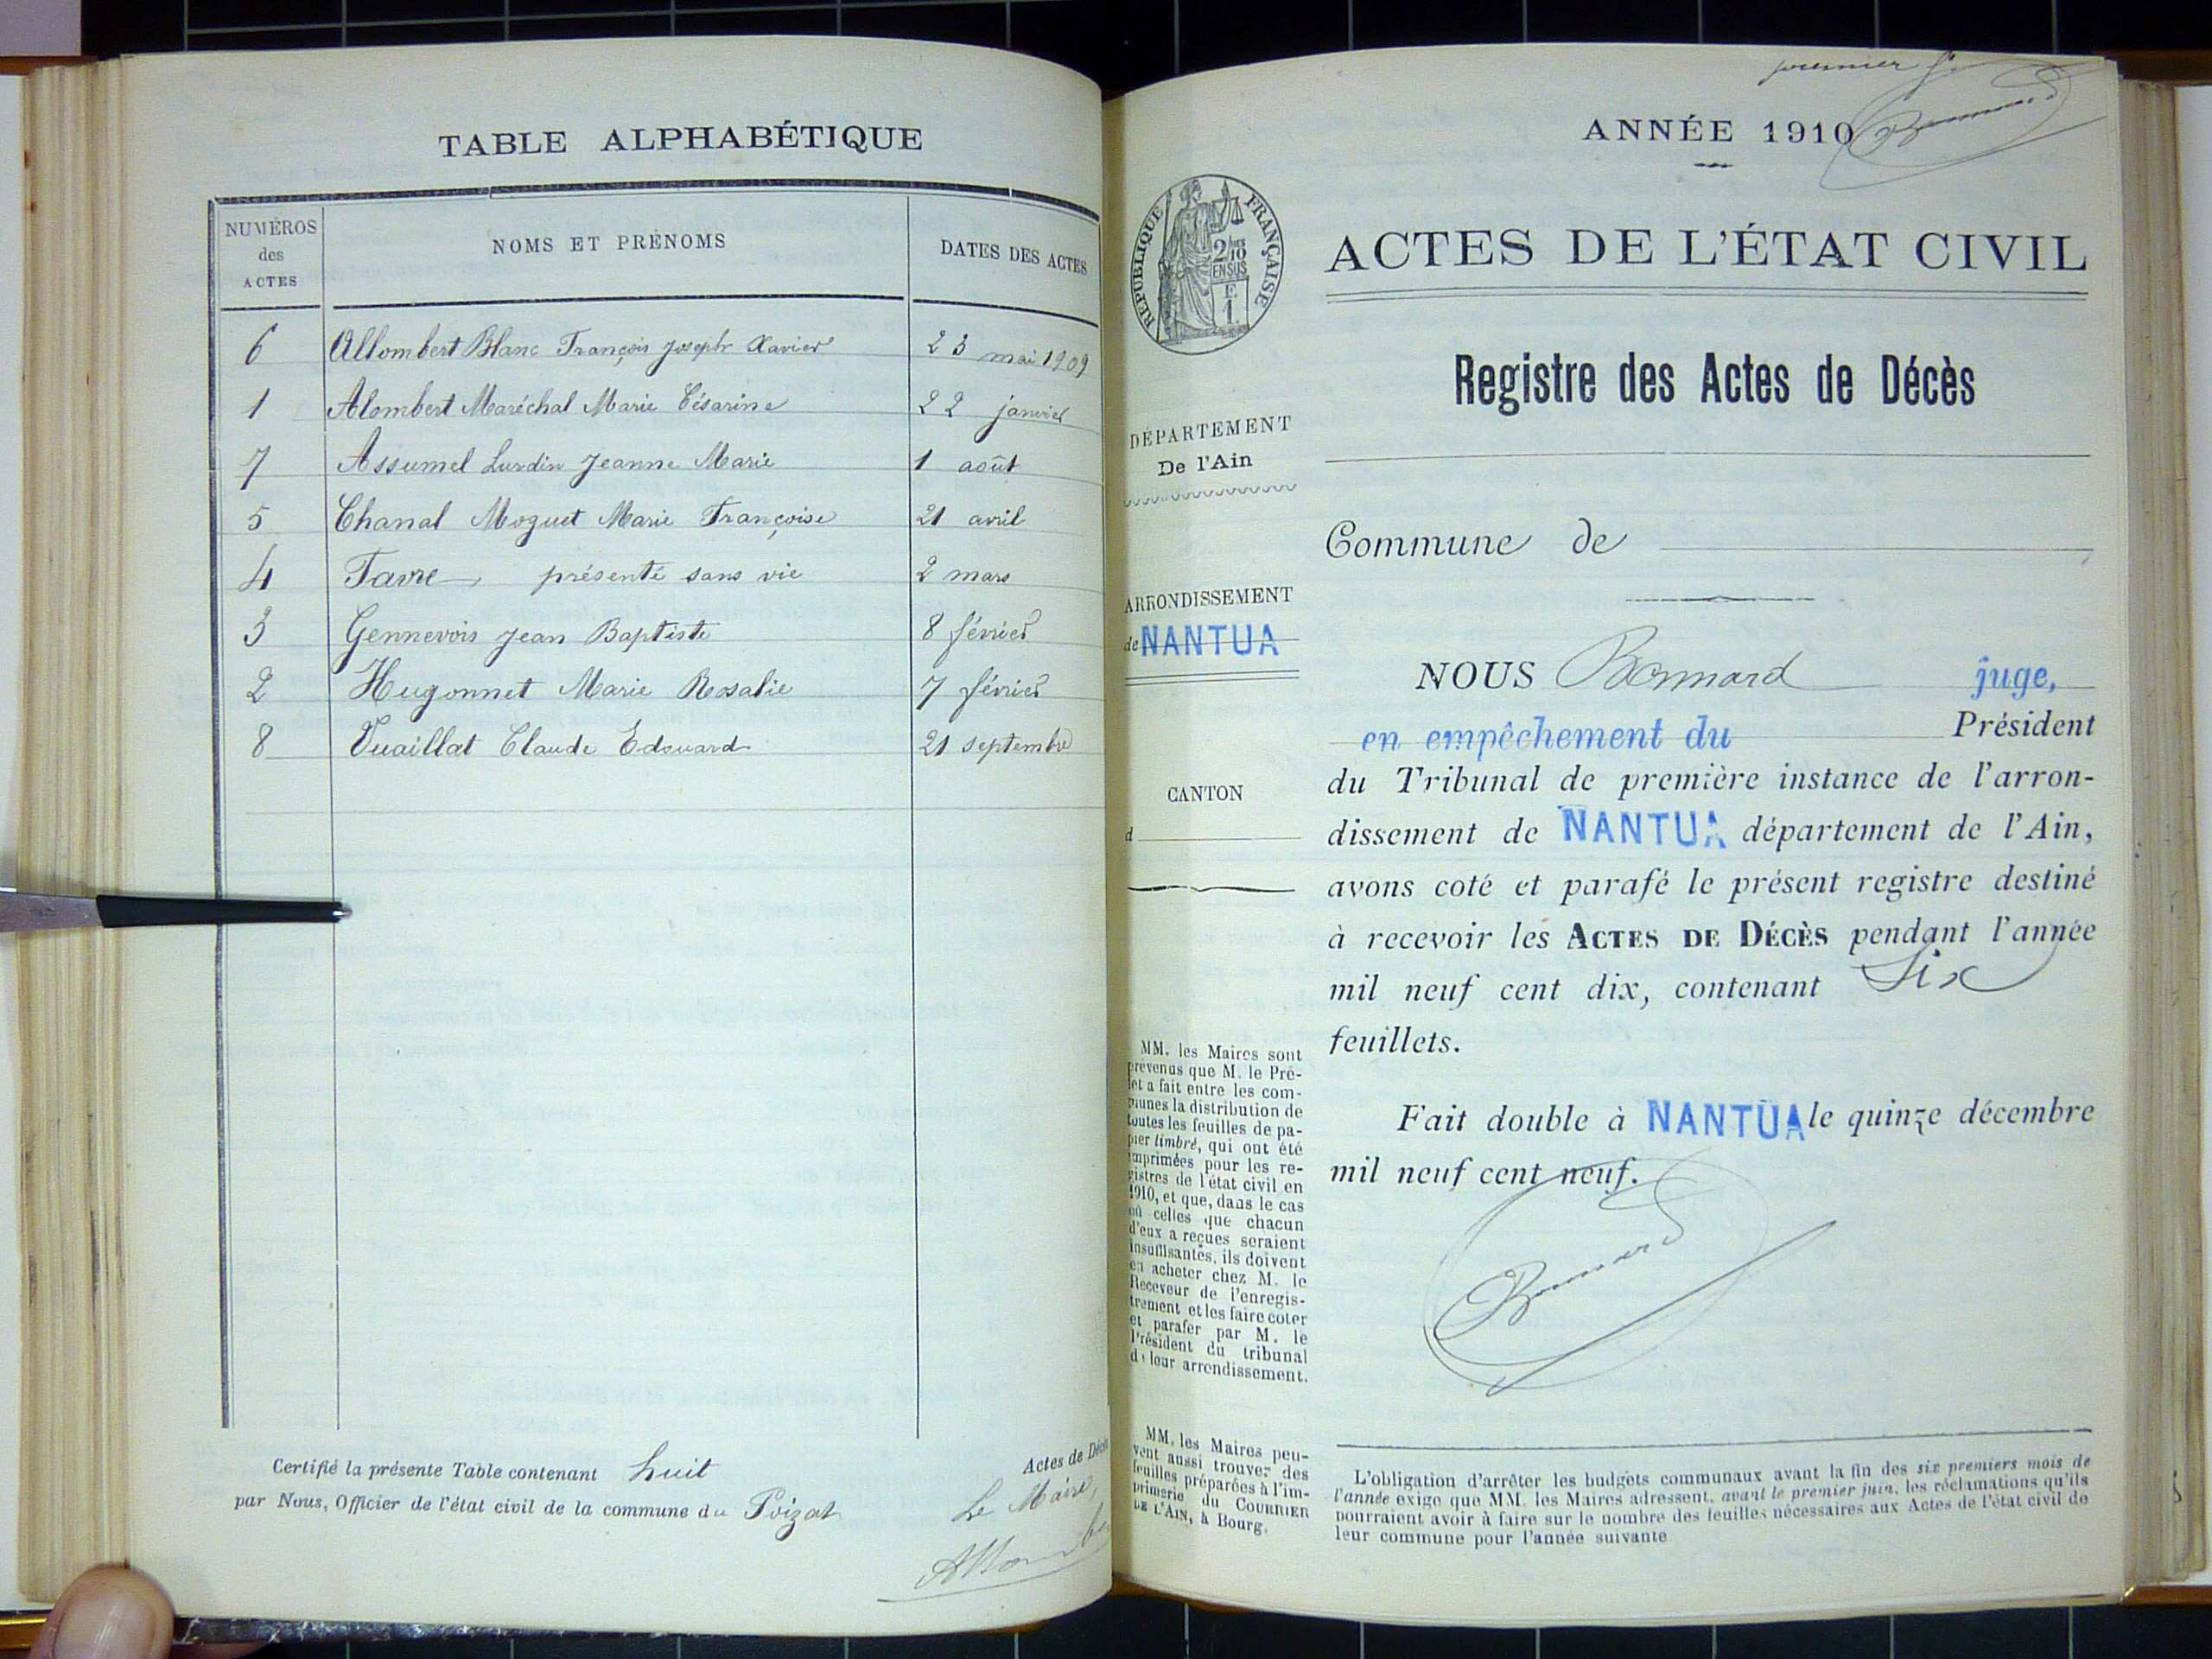 TABLE ALPHABÉTIQUE
NUMÉROS des ACTES NOMS ET PRÉNOMS DATES DES ACTES
6 Allombert Blanc François Joseph Xavier 23 mai 1909
1 Alombert Maréchal Marie Césarine 22 janvier
7 Assumel Lurdin Jeanne Marie 1 août
5 Chanal Moguet Marie Françoise 21 avril
4 Favre présenté sans vie 2 mars
3 Gennevois Jean Baptiste 8 février
2 Hugonnet Marie Rosalie 7 février
8 Vuaillat Claude Edouard 21 septembre
Certifié la présente Table contenant huit Actes de Décès
par Nous, Officier de l'état civil de la commune du Poizat
Le Maire,
premier
ANNÉE 1910
RÉPUBLIQUE FRANÇAISE
2/10
EN SUS
E
1
ACTES DE L'ÉTAT CIVIL
Registre des Actes de Décès
DÉPARTEMENT
De l'Ain
Commune de
ARRONDISSEMENT
de NANTUA
CANTON
d
NOUS Bonnard juge,
en empêchement du Président
du Tribunal de première instance de l'arron-
dissement de NANTUA département de l'Ain,
avons coté et parafé le présent registre destiné
à recevoir les ACTES DE DÉCÈS pendant l'année
mil neuf cent dix, contenant Six
feuillets.
Fait double à NANTUA le quinze décembre
mil neuf cent neuf.
MM. les Maires sont
prévenus que M. le Pré-
fet a fait entre les com-
munes la distribution de
toutes les feuilles de pa-
pier timbré, qui ont été
imprimées pour les re-
gistres de l'état civil en
1910, et que, dans le cas
où celles que chacun
d'eux a reçues seraient
insuffisantes, ils doivent
en acheter chez M. le
Receveur de l'enregis-
trement et les faire coter
et parafer par M. le
Président du tribunal
de leur arrondissement.
MM. les Maires peu-
vent aussi trouver des
feuilles préparées à l'im-
primerie du COURRIER
DE L'AIN, à Bourg.
L'obligation d'arrêter les budgets communaux avant la fin des six premiers mois de
l'année exige que MM. les Maires adressent, avant le premier juin, les réclamations qu'ils
pourraient avoir à faire sur le nombre des feuilles nécessaires aux Actes de l'état civil de
leur commune pour l'année suivante